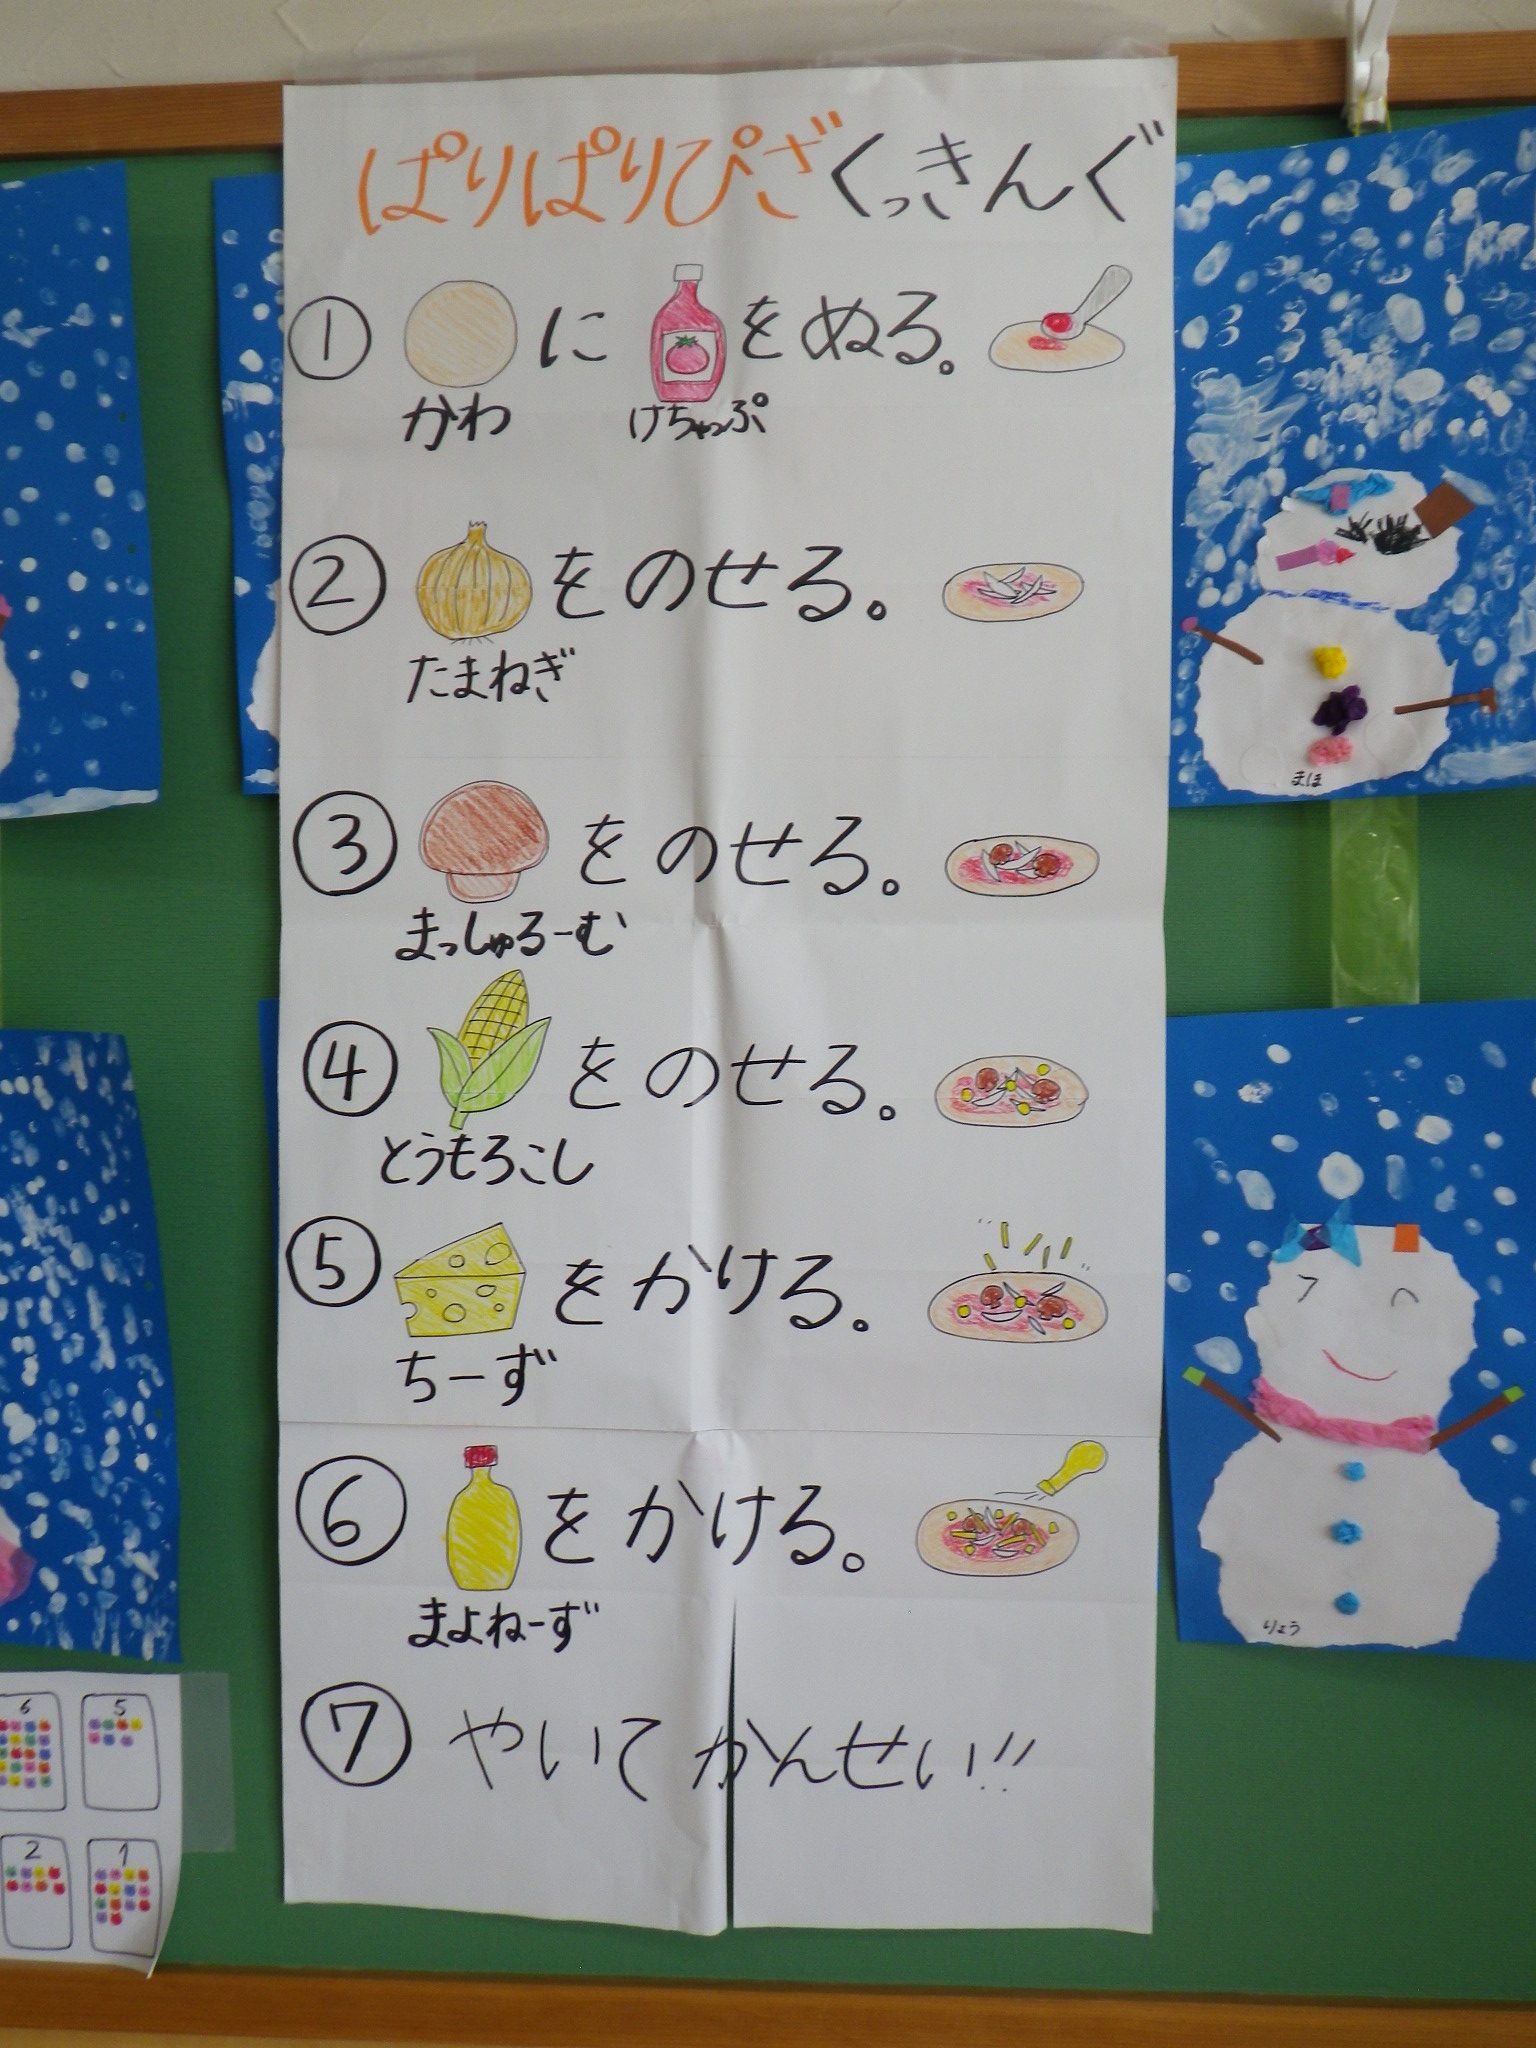 ぱりぱりぴざくっきんぐ
① に をぬる。
かわ けちゃっぷ
② をのせる。
たまねぎ
③ をのせる。
まっしゅるーむ
④ をのせる。
とうもろこし
⑤ をかける。
ちーず
⑥ をかける。
まよねーず
⑦ やいてかんせい!!
まほ
りょう
6 5
2 1